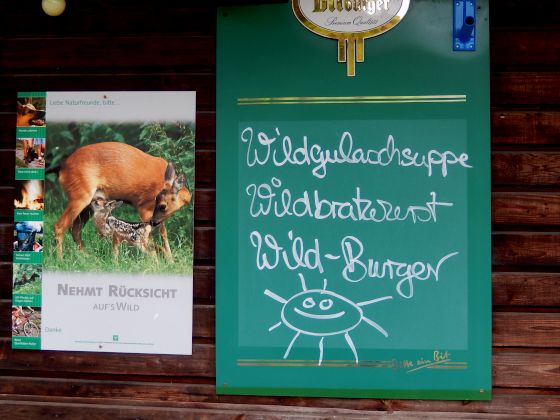 Bitburger
Premium Qualität
Liebe Naturfreunde, bitte...
NEHMT RÜCKSICHT
AUF'S WILD
Danke
Wildgulaschsuppe
Wildbratwurst
Wild-Burger
Bitte ein Bit